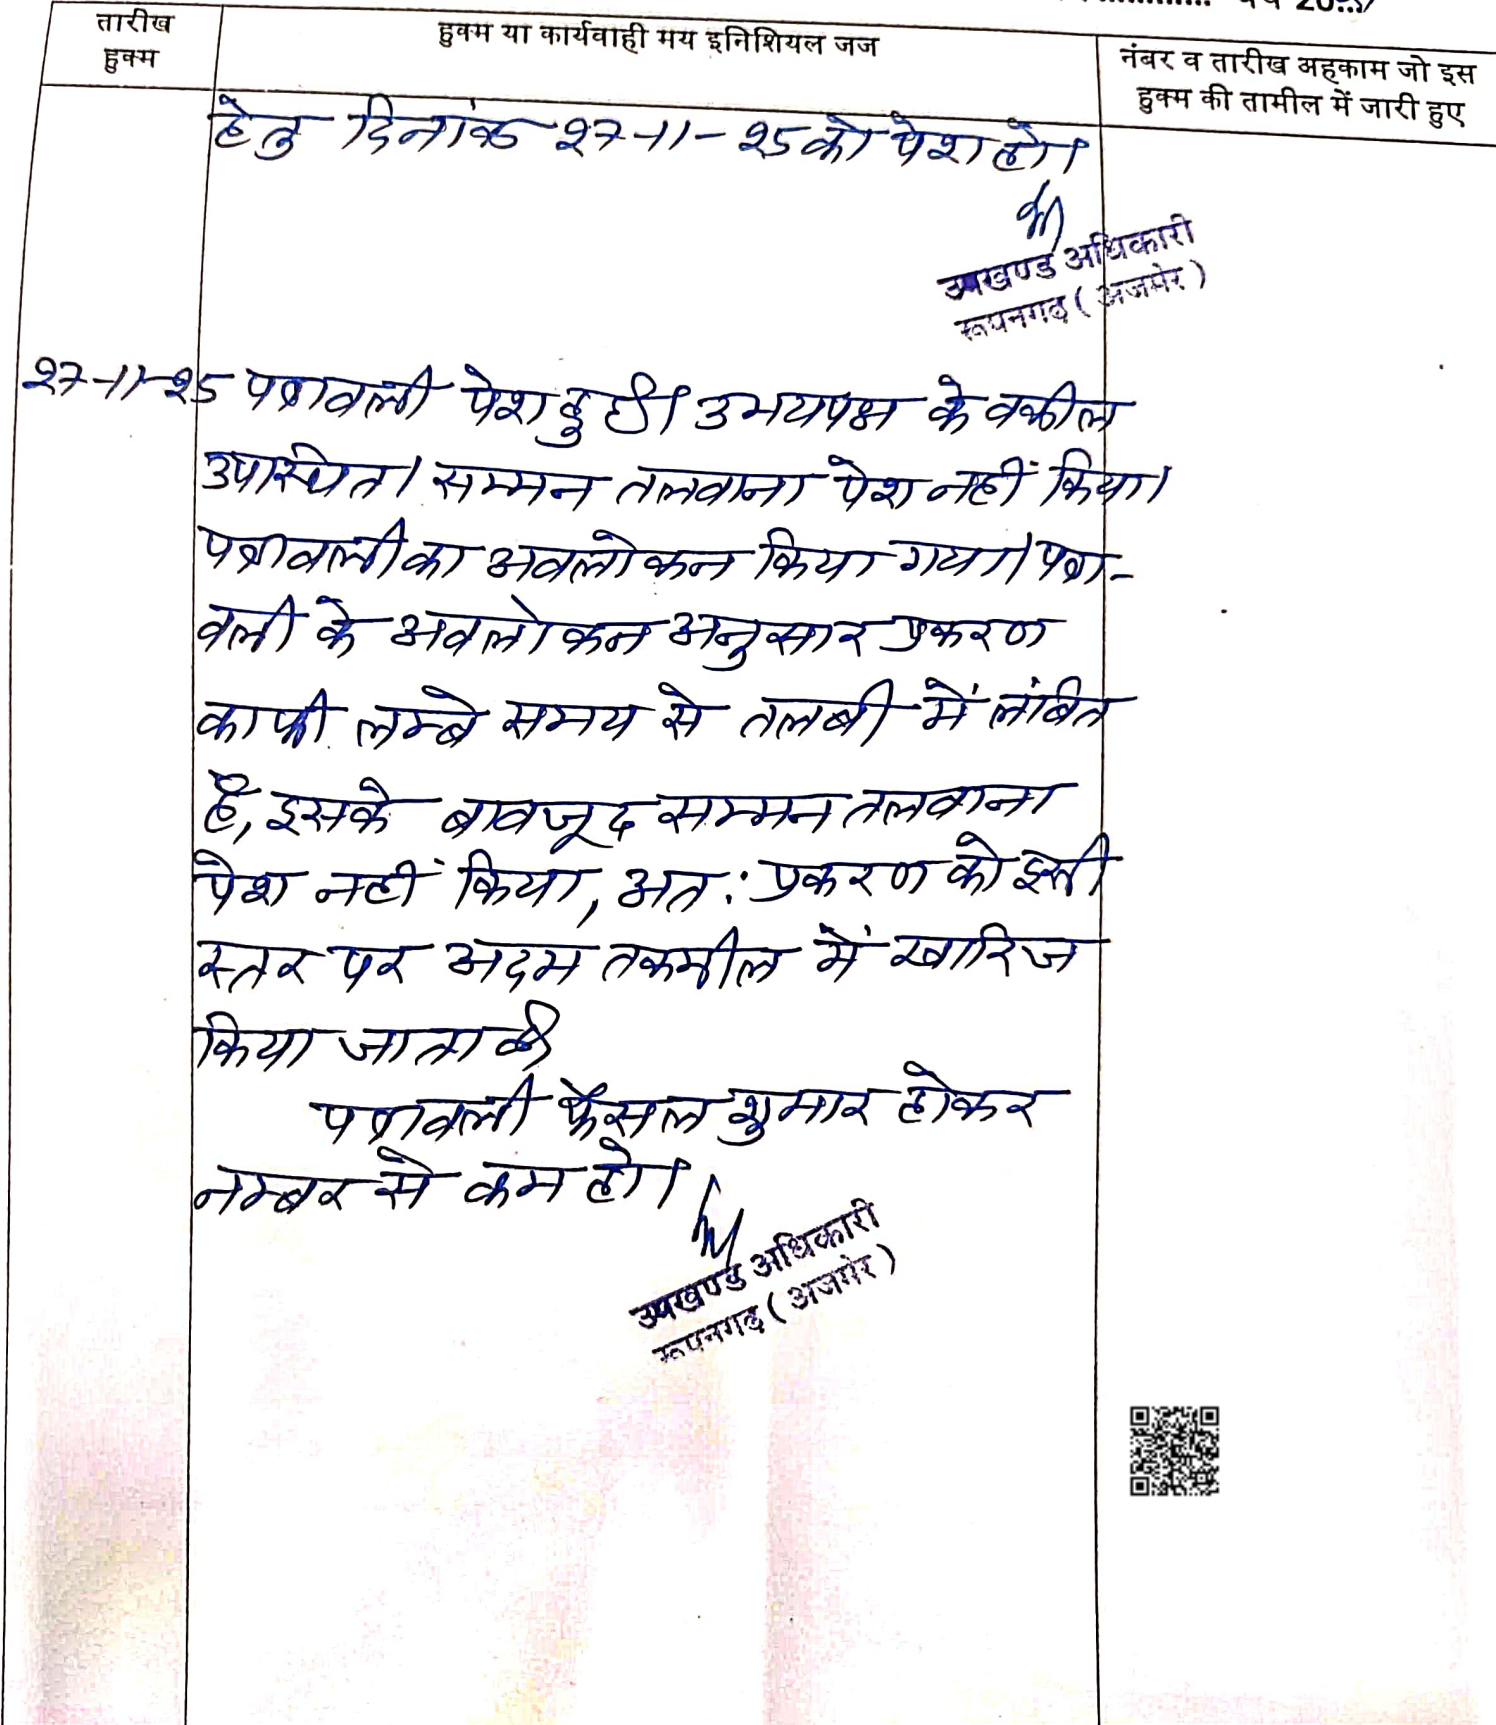 तारीख
हुक्म
हुक्म या कार्यवाही मय इनिशियल जज
नंबर व तारीख अहकाम जो इस
हुक्म की तामील में जारी हुए
हेतु दिनांक 27-11-25 को पेश हो।
उपखण्ड अधिकारी
रूपनगढ़ (अजमेर)
27-11-25 पत्रावली पेश हुई। उभयपक्ष के वकील
उपस्थित। सम्मन तलवाना पेश नहीं किया।
पत्रावली का अवलोकन किया गया। पत्रा-
वली के अवलोकन अनुसार प्रकरण
काफी लम्बे समय से तलबी में लंबित
है, इसके बावजूद सम्मन तलवाना
पेश नहीं किया, अत: प्रकरण को इसी
स्तर पर अदम तकमील में खारिज
किया जाता है।
पत्रावली फैसल शुमार होकर
नम्बर से कम हो।
उपखण्ड अधिकारी
रूपनगढ़ (अजमेर)